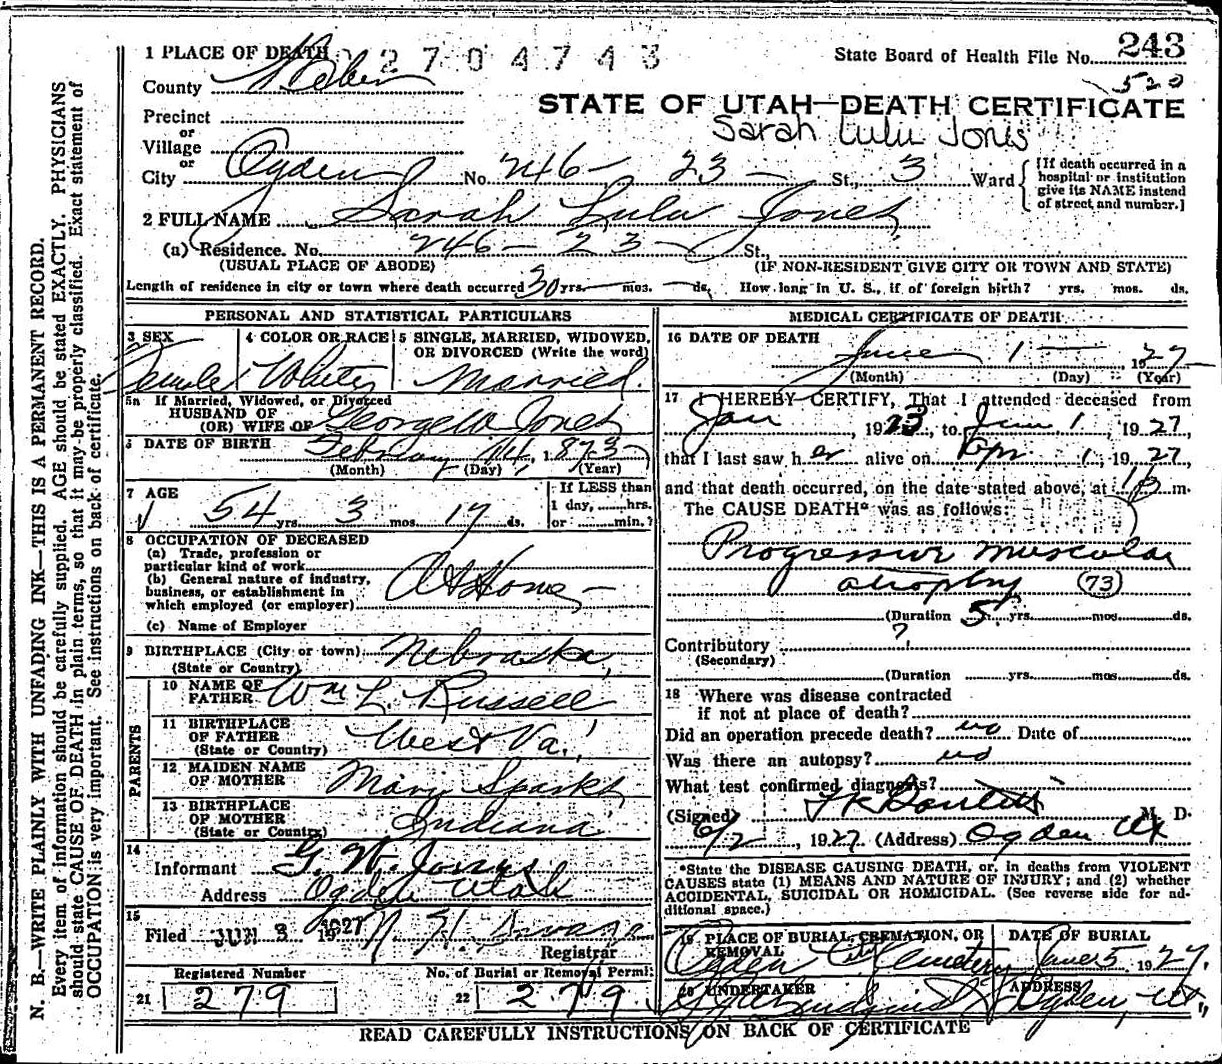 N. B.—WRITE PLAINLY WITH UNFADING INK—THIS IS A PERMANENT RECORD.
Every item of information should be carefully supplied. AGE should be stated EXACTLY. PHYSICIANS
should state CAUSE OF DEATH in plain terms, so that it may be properly classified. Exact statement of
OCCUPATION is very important. See instructions on back of certificate.
1 PLACE OF DEATH 2704743 State Board of Health File No. 243
520
County Weber
STATE OF UTAH—DEATH CERTIFICATE
Precinct
or
Sarah Lulu Jones
Village
or
City Ogden No. 246 - 23 - St., 3 Ward
[If death occurred in a
hospital or institution
give its NAME instead
of street and number.]
2 FULL NAME Sarah Lulu Jones
(a) Residence. No. 246 - 23 - St.,
(USUAL PLACE OF ABODE) (IF NON-RESIDENT GIVE CITY OR TOWN AND STATE)
Length of residence in city or town where death occurred 30 yrs. — mos. — ds. How long in U. S., if of foreign birth? yrs. mos. ds.
PERSONAL AND STATISTICAL PARTICULARS
3 SEX 4 COLOR OR RACE 5 SINGLE, MARRIED, WIDOWED,
OR DIVORCED (Write the word)
Female White Married
5a If Married, Widowed, or Divorced
HUSBAND OF
(OR) WIFE OF George W Jones
6 DATE OF BIRTH February 14, 1873
(Month) (Day) (Year)
7 AGE If LESS than
1 day, hrs.
54 yrs. 3 mos. 17 ds. or min.?
8 OCCUPATION OF DECEASED
(a) Trade, profession or
particular kind of work
(b) General nature of industry,
business, or establishment in
which employed (or employer)
At Home
(c) Name of Employer
9 BIRTHPLACE (City or town) Nebraska
(State or Country)
PARENTS
10 NAME OF
FATHER Wm L. Russell
11 BIRTHPLACE
OF FATHER
(State or Country) West Va.
12 MAIDEN NAME
OF MOTHER Mary Sparks
13 BIRTHPLACE
OF MOTHER
(State or Country) Indiana
14
Informant G. W. Jones
Address Ogden Utah
15
Filed JUN 3 1927
Registrar
Registered Number No. of Burial or Removal Permit
21 279 22 279
MEDICAL CERTIFICATE OF DEATH
16 DATE OF DEATH
June 1 — 1927
(Month) (Day) (Year)
17 I HEREBY CERTIFY, That I attended deceased from
Jan, 1923, to June 1, 1927,
that I last saw her alive on Apr 1, 1927,
and that death occurred, on the date stated above, at m.
The CAUSE DEATH* was as follows:
Progressive muscular
atrophy (73)
(Duration 5 yrs. mos. ds.
Contributory ?
(Secondary)
(Duration yrs. mos. ds.
18 Where was disease contracted
if not at place of death?
Did an operation precede death? no Date of
Was there an autopsy? no
What test confirmed diagnosis?
(Signed) M. D.
6/2, 1927 (Address) Ogden Ut
*State the DISEASE CAUSING DEATH, or, in deaths from VIOLENT
CAUSES state (1) MEANS AND NATURE OF INJURY; and (2) whether
ACCIDENTAL, SUICIDAL OR HOMICIDAL. (See reverse side for ad-
ditional space.)
19 PLACE OF BURIAL, CREMATION, OR DATE OF BURIAL
REMOVAL
Ogden City Cemetery June 5, 1927.
20 UNDERTAKER ADDRESS
Ogden, Ut.
READ CAREFULLY INSTRUCTIONS ON BACK OF CERTIFICATE